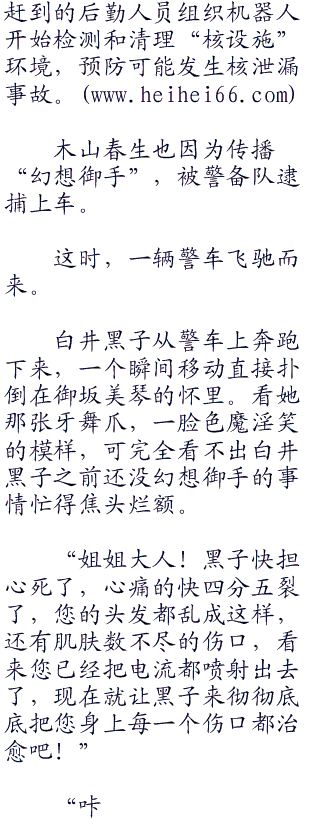 赶到的后勤人员组织机器人
开始检测和清理“核设施”
环境，预防可能发生核泄漏
事故。(www.heihei66.com)
木山春生也因为传播
“幻想御手”，被警备队逮
捕上车。
这时，一辆警车飞驰而
来。
白井黑子从警车上奔跑
下来，一个瞬间移动直接扑
倒在御坂美琴的怀里。看她
那张牙舞爪，一脸色魔淫笑
的模样，可完全看不出白井
黑子之前还没幻想御手的事
情忙得焦头烂额。
“姐姐大人！黑子快担
心死了，心痛的快四分五裂
了，您的头发都乱成这样，
还有肌肤数不尽的伤口，看
来您已经把电流都喷射出去
了，现在就让黑子来彻彻底
底把您身上每一个伤口都治
愈吧！”
“咔